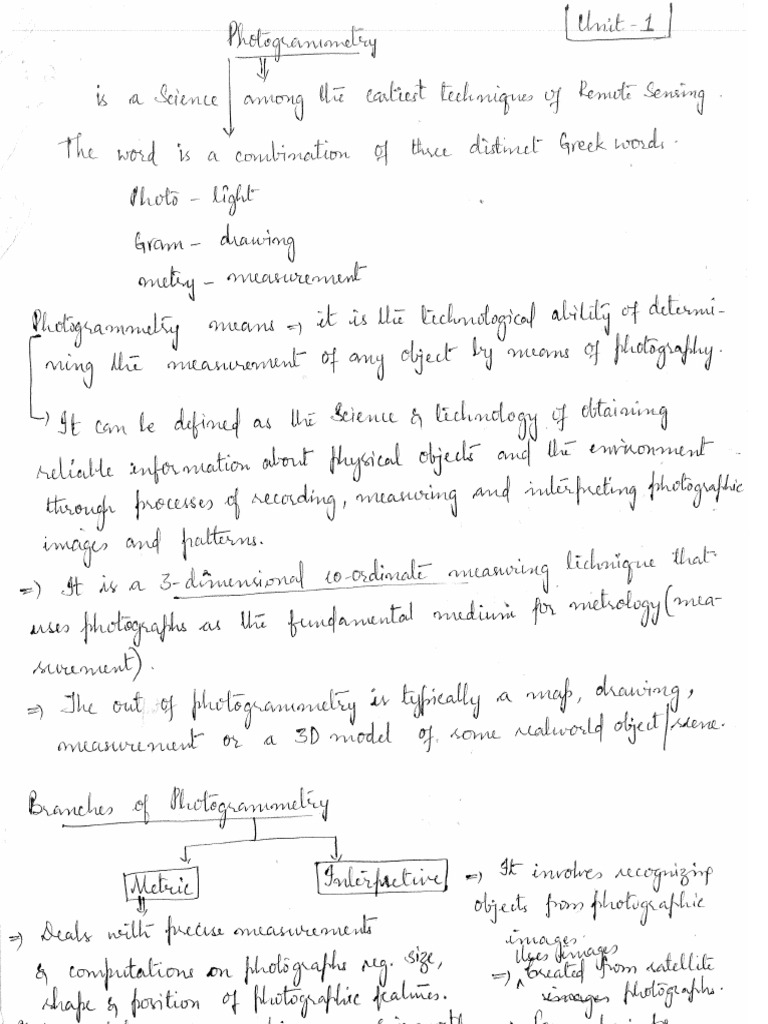 Unit-1
Photogrammetry
is a Science among the earliest techniques of Remote Sensing.
The word is a combination of three distinct Greek words.
Photo - light
Gram - drawing
metry - measurement
Photogrammetry means => it is the technological ability of determi-
ning the measurement of any object by means of photography.
It can be defined as the Science & technology of obtaining
reliable information about physical objects and the environment
through processes of recording, measuring and interpreting photographic
images and patterns.
=) It is a 3-dimensional co-ordinate measuring technique that
uses photographs as the fundamental medium for metrology (mea-
surement).
=) The out of photogrammetry is typically a map, drawing,
measurement or a 3D model of some realworld object/scene.
Branches of Photogrammetry
Metric
Interpretive
=) It involves recognizing
objects from photographic
images.
=) Uses images created from satellite
photographs.
=) Deals with precise measurements
& computations on photographs reg. size,
shape & position of photographic features.